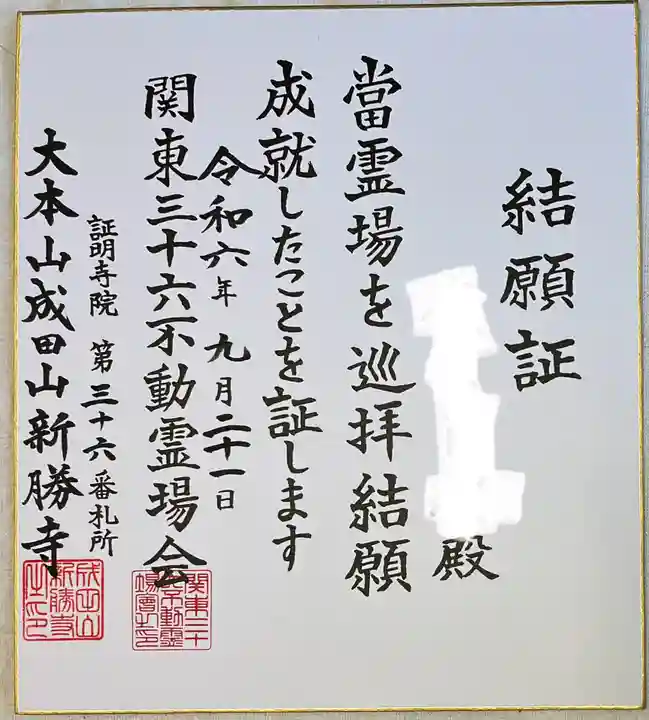 結願証
殿
當霊場を巡拝結願
成就したことを証します
令和六年九月二十一日
関東三十六不動霊場会
証明寺院 第三十六番札所
大本山成田山新勝寺
関東三十
六不動霊
場會之印
成田山
新勝寺
之印